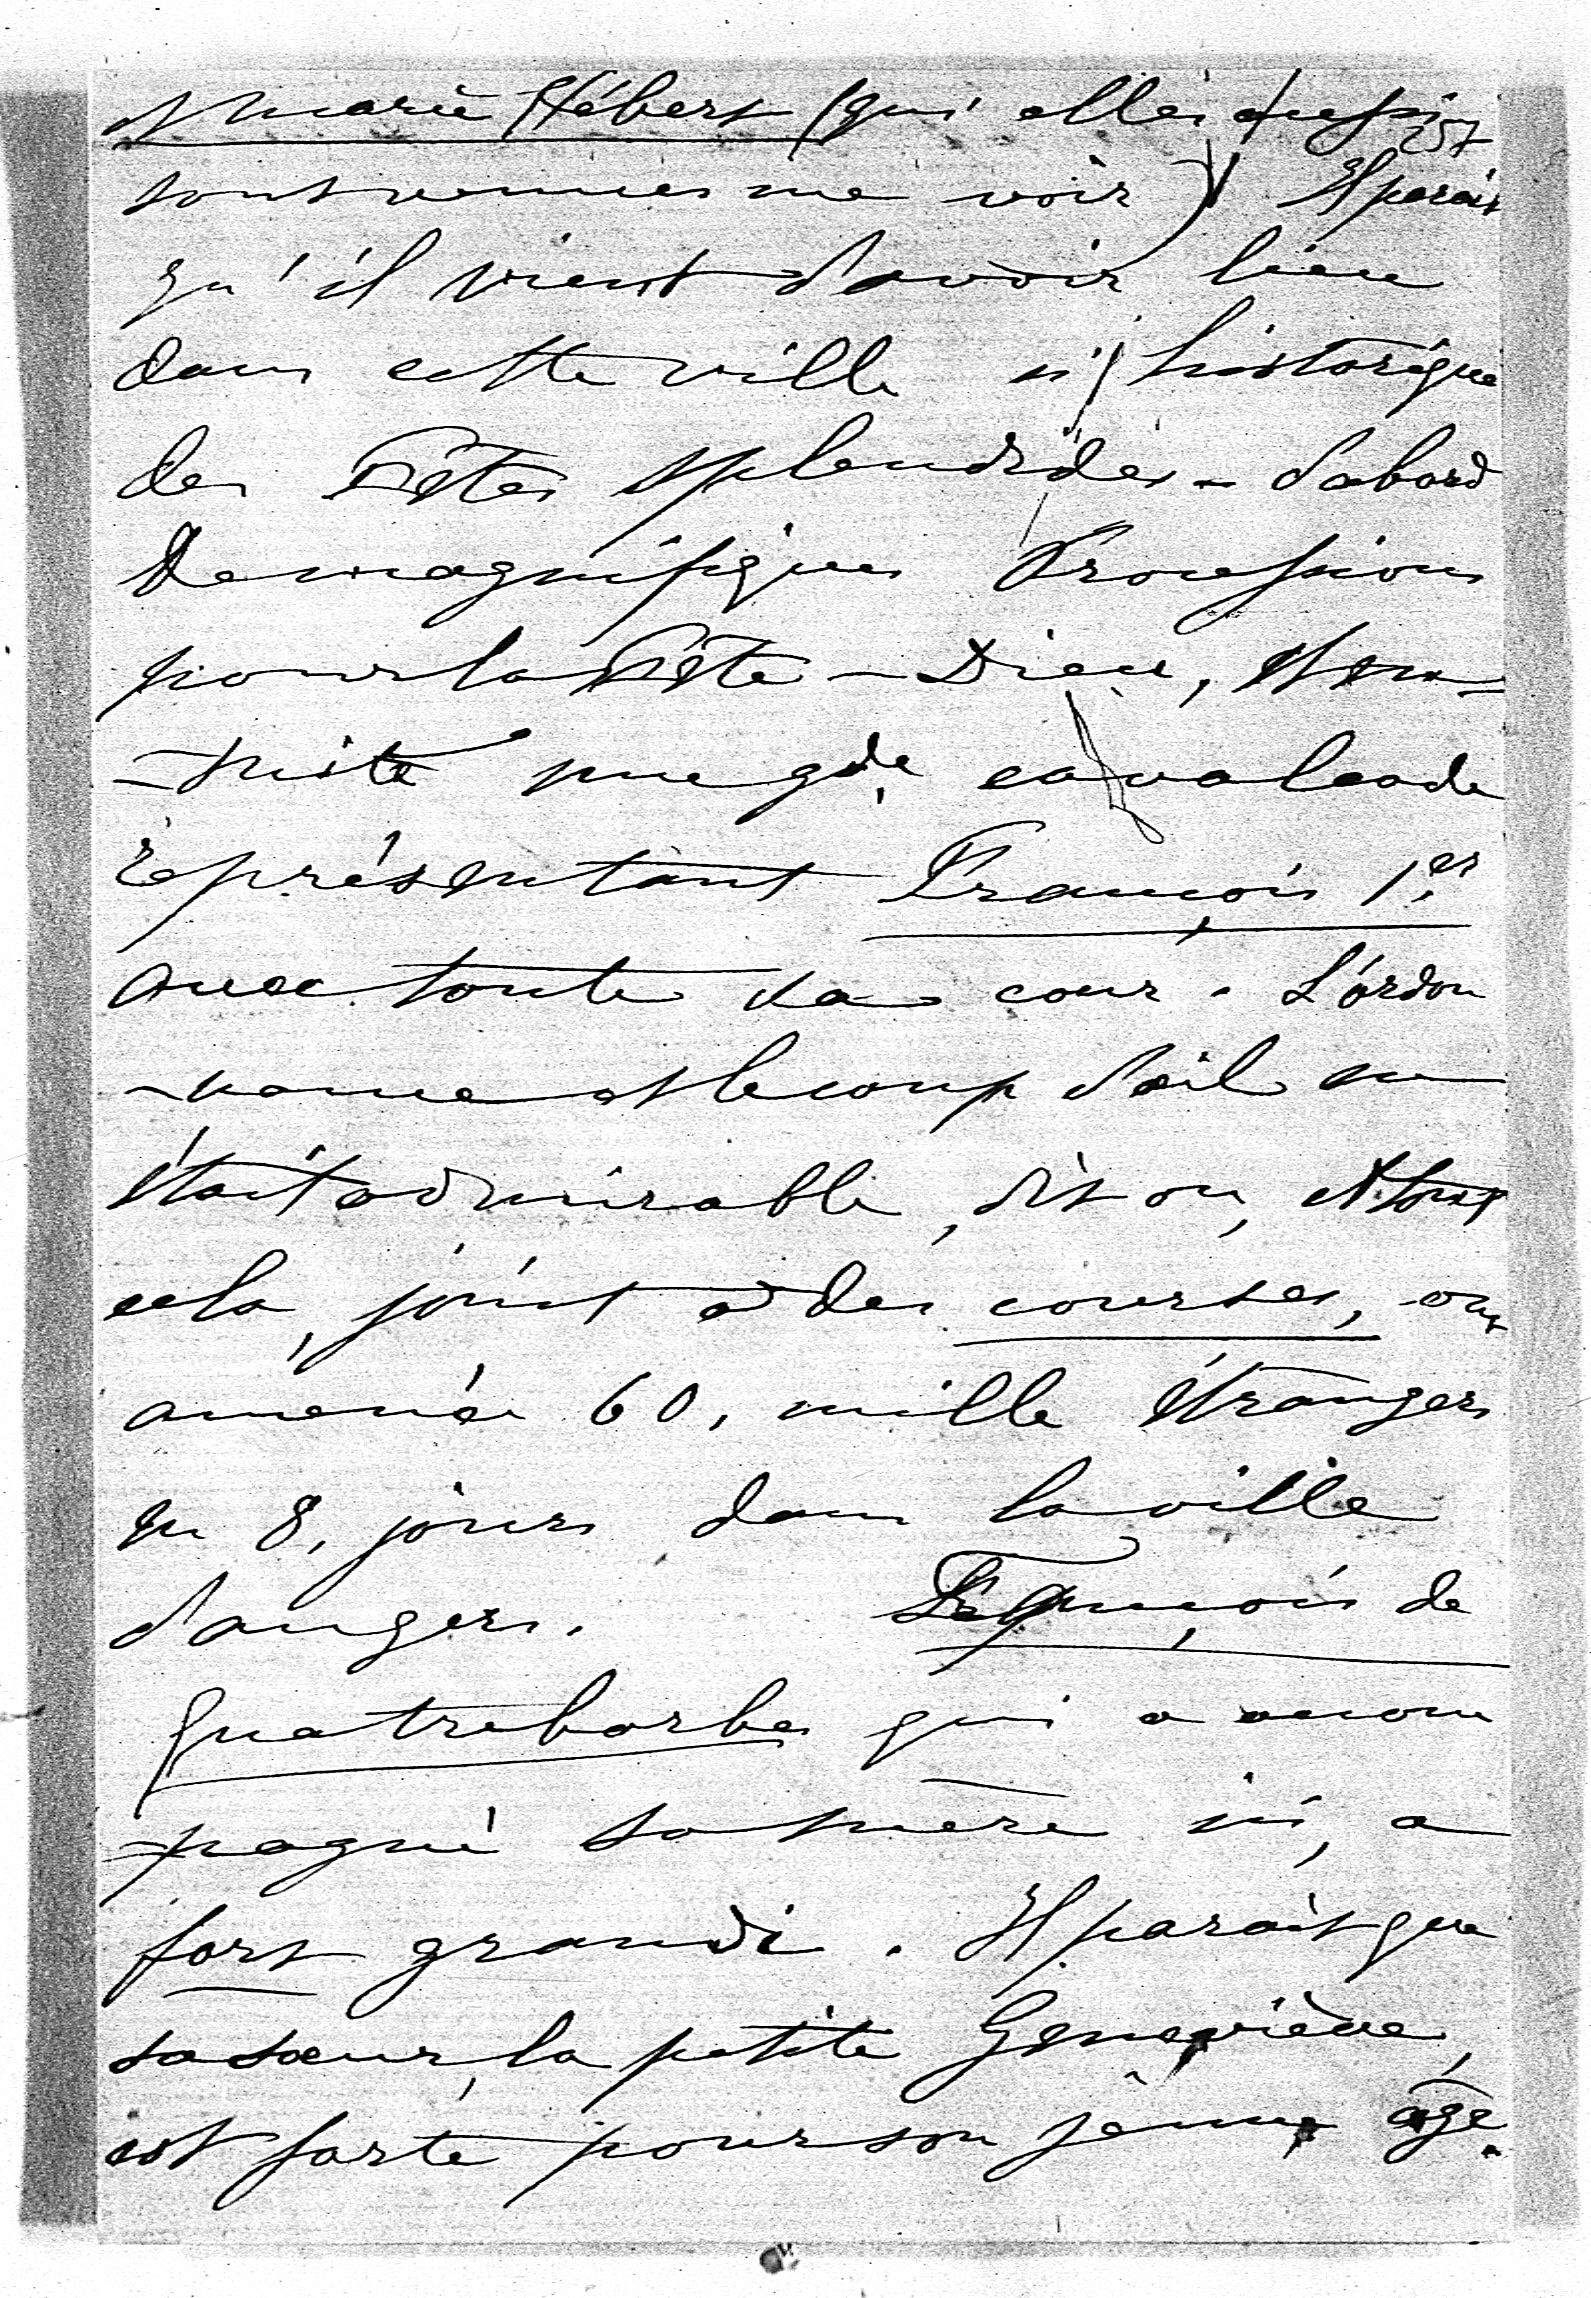 & Marie Hébert (qui elles aussi
257
sont venues me voir) Il parait
qu'il vient d'avoir lieu
dans cette ville si historique
des Fêtes splendides - d'abord
de magnifiques Processions
pour la Fête-Dieu, et en-
-suite une gde cavalcade
représentant François 1er
avec toute sa cour. L'ordon
-nance et le coup d'œil en
était admirable, dit on, et tout
cela, joint à des courses, ont
amenés 60, mille étrangers
en 8, jours dans la ville
d'angers. François de
Quatrebarbes qui a accom
-pagné sa mère ici, a
fort grandi. Il parait que
sa sœur, la petite Geneviève,
est forte pour son jeune âge.